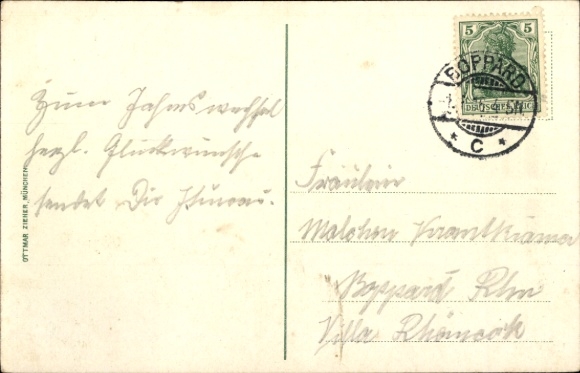 5 5
BOPPARD
DEUTSCHES REICH
* C *
Zum Jahreswechsel
herzl. Glückwünsche
sendet Dir
Fräulein
Boppard Rhn
Villa
OTTMAR ZIEHER, MÜNCHEN